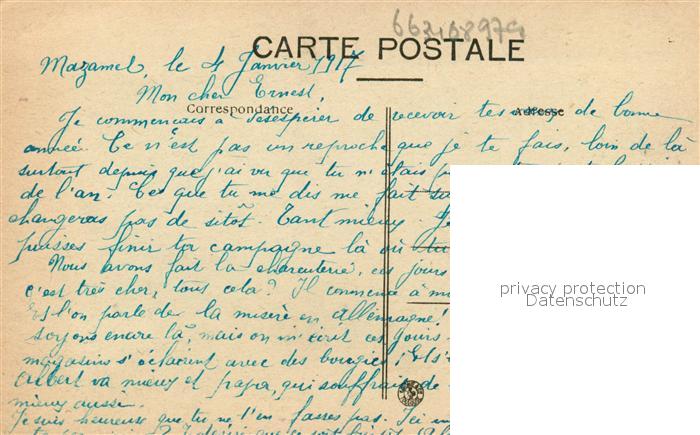 663468979
CARTE POSTALE
Mazamet, le 4 Janvier 1917
Mon cher Ernest,
Correspondance
Adresse
Je commençais à désespérer de recevoir tes de bonne
année. Ce n'est pas un reproche que je te fais, loin de là
surtout depuis que j'ai vu que tu n'étais
de l'an. Ce que tu me dis me fait
changeras pas de sitôt. Tant mieux. Je
puisses finir ta campagne là où tu
Nous avons fait la charcuterie, ces jours
c'est très cher, tous cela? Il commence à
Et l'on parle de la misère en Allemagne!
soyons encore là, mais on m'écrit ces jours
magasins s'éclairent avec des bougies! Et
Albert va mieux et papa, qui souffrait de
mieux aussi.
Je suis heureuse que tu ne t'en fasses pas. Ici
privacy protection
Datenschutz